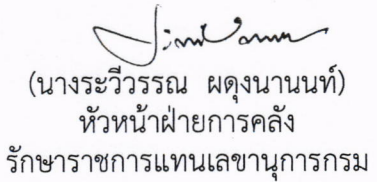 (นางระวีวรรณ ผดุงนานนท์)
หัวหน้าฝ่ายการคลัง
รักษาราชการแทนเลขานุการกรม